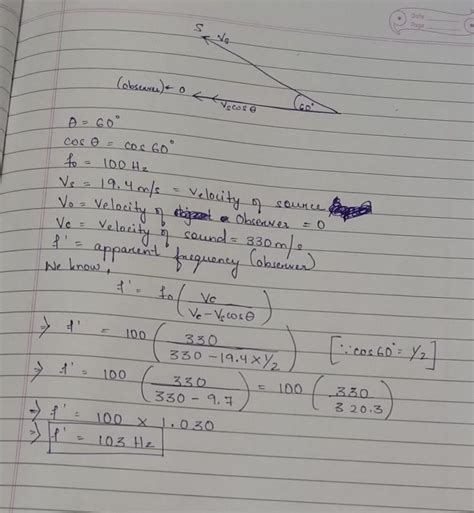 Date
Page
S
Vs
(observer) ← O
Vscosθ
60°
θ = 60°
cosθ = cos60°
f₀ = 100 Hz
Vs = 19.4 m/s = velocity of source
Vo = velocity of Observer = 0
Vc = velocity of sound = 330 m/s
f' = apparent frequency (observer)
We know,
f' = f₀ (Vc / Vc - Vscosθ)
⇒ f' = 100 (330 / 330 - 19.4 x 1/2) [∵ cos60° = 1/2]
⇒ f' = 100 (330 / 330 - 9.7) = 100 (330 / 320.3)
⇒ f' = 100 x 1.030
⇒ f' = 103 Hz